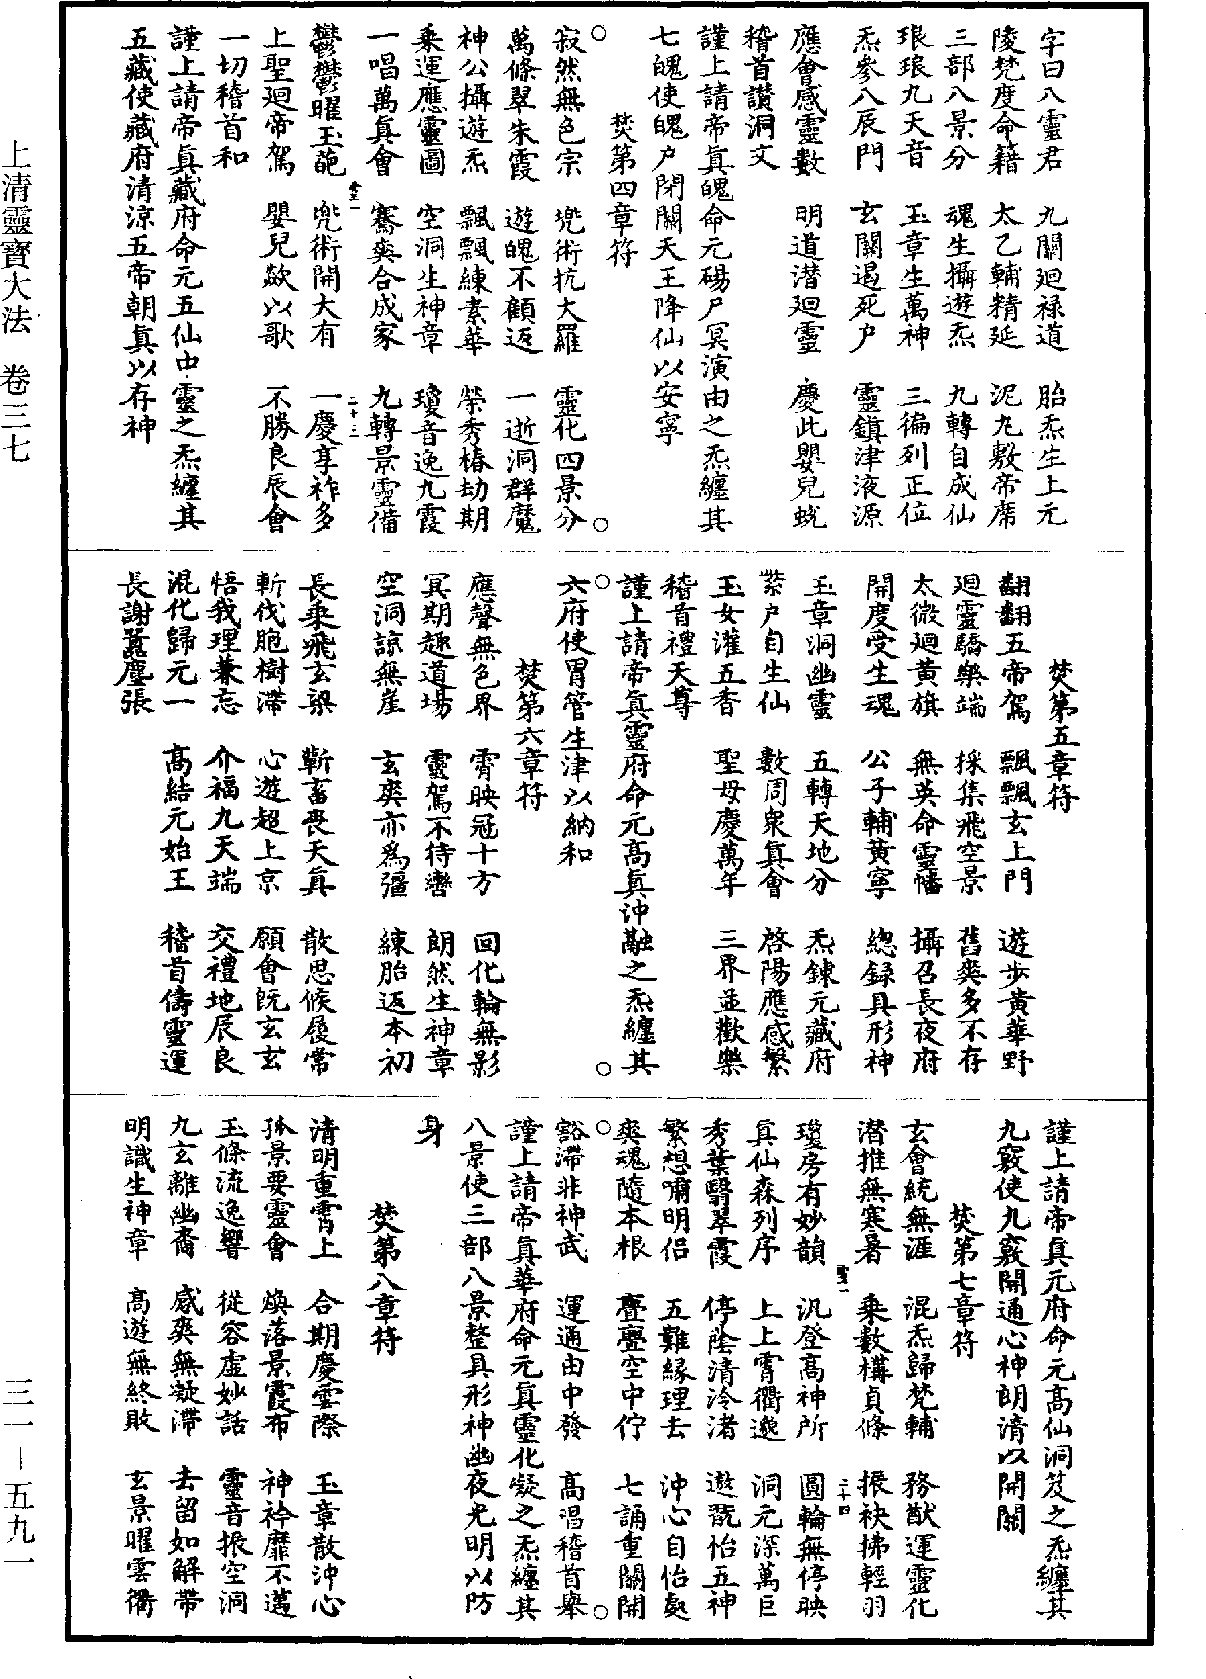 字曰八靈君　九關廻祿道　胎炁生上元
陵梵度命籍　太乙輔精延　泥丸敷帝席
三部八景分　魂生攝遊炁　九轉自成仙
琅琅九天音　玉章生萬神　三徧列正位
炁參八辰門　玄關遏死戶　靈鎮津液源
應會感靈數　明道潛廻靈　慶此嬰兒蛻
稽首讚洞文
謹上請帝眞魄命元碭尸冥演由之炁纏其
七魄使魄戶閉關天王降仙以安寧
焚第四章符
○　○
寂然無色宗　兜術抗大羅　靈化四景分
萬條翠朱霞　遊魄不顧返　一逝洞群魔
神公攝遊炁　飄飄練素華　榮秀椿劫期
乘運應靈圖　空洞生神章　瓊音逸九霞
一唱萬眞會　騫爽合成家　九轉景靈備
二十三
鬱鬱曜玉葩　兜術開大有　一慶享祚多
上聖廻帝駕　嬰兒歘以歌　不勝良辰會
一切稽首和
謹上請帝眞藏府命元五仙中靈之炁纏其
五藏使藏府清涼五帝朝眞以存神
焚第五章符
翻翻五帝駕　飄飄玄上門　遊步黃華野
廻靈驕樂端　採集飛空景　舊爽多不存
太微廻黃旗　無英命靈幡　攝召長夜府
開度受生魂　公子輔黃寧　總錄具形神
玉章洞幽靈　五轉天地分　炁鍊元藏府
紫戶自生仙　數周衆眞會　啓陽應感繁
玉女灌五香　聖母慶萬年　三界並歡樂
稽首禮天尊
謹上請帝眞靈府命元高眞沖融之炁纏其
○　○
六府使胃管生津以納和
焚第六章符
應聲無色界　霄映冠十方　回化輪無影
冥期趣道場　靈駕不待轡　朗然生神章
空洞諒無崖　玄爽亦爲彊　練胎返本初
長乘飛玄梁　蘄畜喪天眞　散思候履常
斬伐胞樹滯　心遊超上京　願會旣玄玄
悟我理兼忘　介福九天端　交禮地辰良
混化歸元一　高結元始王　稽首儔靈運
長謝囂塵張
謹上請帝眞元府命元高仙洞笈之炁纏其
九竅使九竅開通心神朗清以開關
焚第七章符
玄會統無涯　混炁歸梵輔　務猷運靈化
潛推無寒暑　乘數構貞條　振袂拂輕羽
二十四
瓊房有妙韻　汎登高神所　圓輪無停映
眞仙森列序　上上霄衢邈　洞元深萬巨
秀葉翳翠霞　停蔭清泠渚　遨翫怡五神
繁想嘯明侶　五難緣理去　沖心自怡處
爽魂隨本根　亹亹空中佇　七誦重關開
○　○
豁滯非神武　運通由中發　高唱稽首舉
謹上請帝眞華府命元眞靈化凝之炁纏其
八景使三部八景整具形神幽夜光明以防
身
焚第八章符
清明重霄上　合期慶雲際　玉章散沖心
孫景要靈會　煥落景霞布　神衿靡不邁
玉條流逸響　從容虛妙話　靈音振空洞
九玄離幽裔　感爽無凝滯　去留如解帶
明識生神章　高遊無終敗　玄景曜雲衢
上清靈寶大法　卷三七
三一－五九一